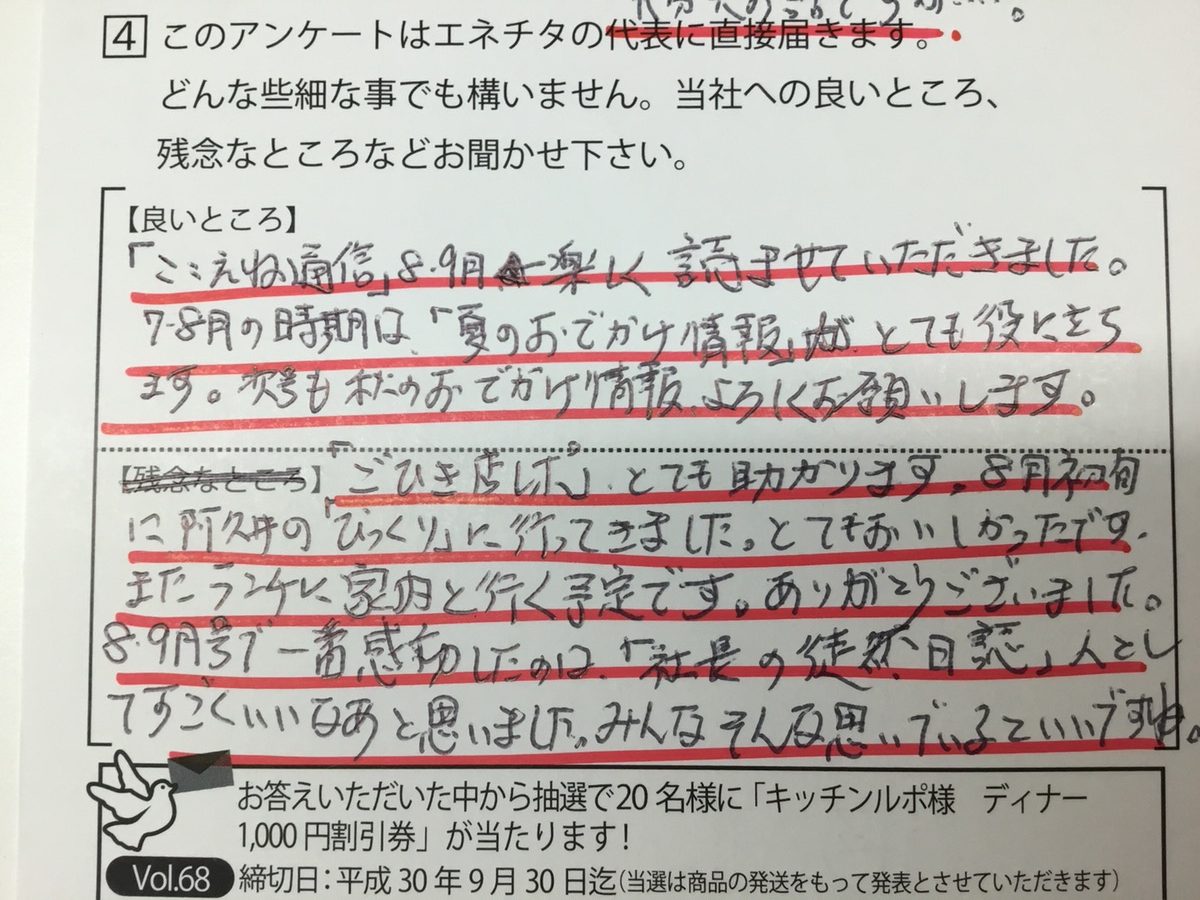 4 このアンケートはエネチタの代表に直接届きます。
どんな些細な事でも構いません。当社への良いところ、
残念なところなどお聞かせ下さい。
【良いところ】
「ここえね通信」8・9月 楽しく読ませていただきました。
7・8月の時期は、「夏のおでかけ情報」が、とても役に立ち
ます。次号も秋のおでかけ情報、よろしくお願いします。
【残念なところ】「ごひき店レポ」、とても助かります。8月初旬
に阿久井の「びっくり」に行ってきました。とてもおいしかったです。
またランチに家内と行く予定です。ありがとうございました。
8・9月号で一番感動したのは、「社長の徒然日誌」人とし
てすごくいいなあと思いました。みんなそんな思いでいるといいですね。
お答えいただいた中から抽選で20名様に「キッチンルポ様 ディナー
1,000円割引券」が当たります!
Vol.68 締切日：平成30年9月30日迄(当選は商品の発送をもって発表とさせていただきます)